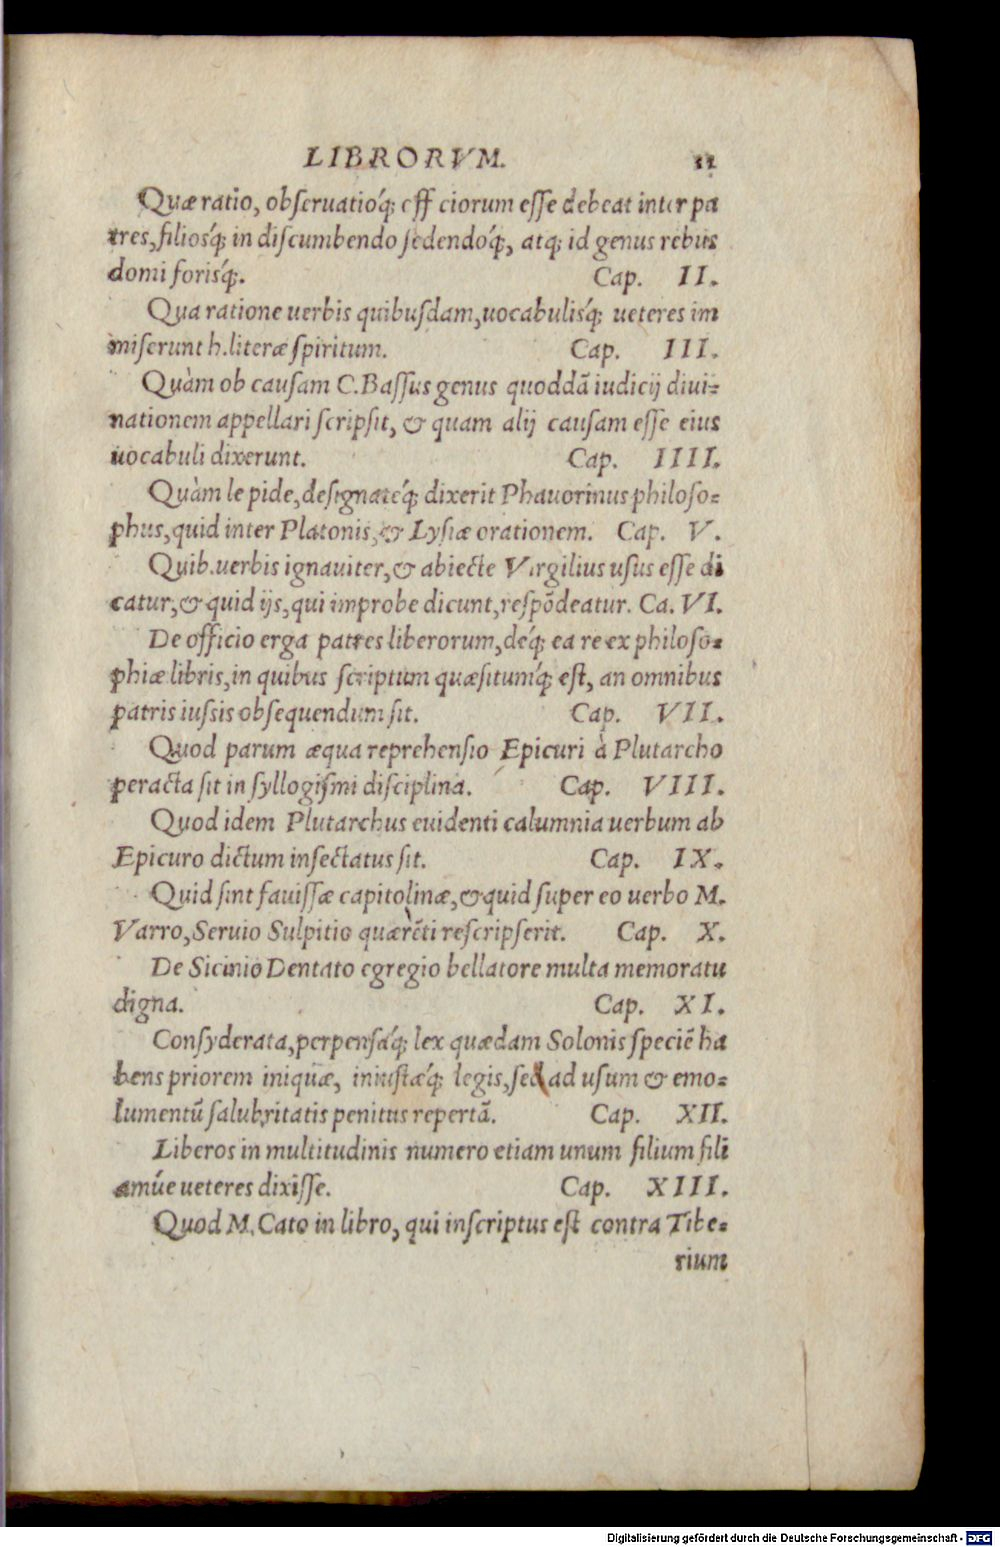 LIBRORVM. 11
Quæ ratio, obseruatioq́; eff ciorum esse debeat inter pa
tres, filiosq́; in discumbendo sedendoq́;, atq; id genus rebus
domi forisq́;. Cap. II.
Qua ratione uerbis quibusdam, uocabulisq́; ueteres im
miserunt h. literæ spiritum. Cap. III.
Quàm ob causam C. Bassus genus quoddã iudicij diui-
nationem appellari scripsit, & quam alij causam esse eius
uocabuli dixerunt. Cap. IIII.
Quàm lepide, designateq́; dixerit Phauorinus philoso-
phus, quid inter Platonis, & Lysiæ orationem. Cap. V.
Quib. uerbis ignauiter, & abiecte Virgilius usus esse di
catur, & quid ijs, qui improbe dicunt, respõdeatur. Ca. VI.
De officio erga patres liberorum, deq́; ea re ex philoso-
phiæ libris, in quibus scriptum quæsitumq́; est, an omnibus
patris iussis obsequendum sit. Cap. VII.
Quod parum æqua reprehensio Epicuri à Plutarcho
peracta sit in syllogismi disciplina. Cap. VIII.
Quod idem Plutarchus euidenti calumnia uerbum ab
Epicuro dictum insectatus sit. Cap. IX.
Quid sint fauissæ capitolinæ, & quid super eo uerbo M.
Varro, Seruio Sulpitio quærẽti rescripserit. Cap. X.
De Sicinio Dentato egregio bellatore multa memoratu
digna. Cap. XI.
Consyderata, perpensáq; lex quædam Solonis speciẽ ha
bens priorem iniquæ, iniustæq́; legis, sed ad usum & emo-
lumentũ salubritatis penitus repertã. Cap. XII.
Liberos in multitudinis numero etiam unum filium fili
amúe ueteres dixisse. Cap. XIII.
Quod M. Cato in libro, qui inscriptus est contra Tibe-
rium
Digitalisierung gefördert durch die Deutsche Forschungsgemeinschaft - DFG